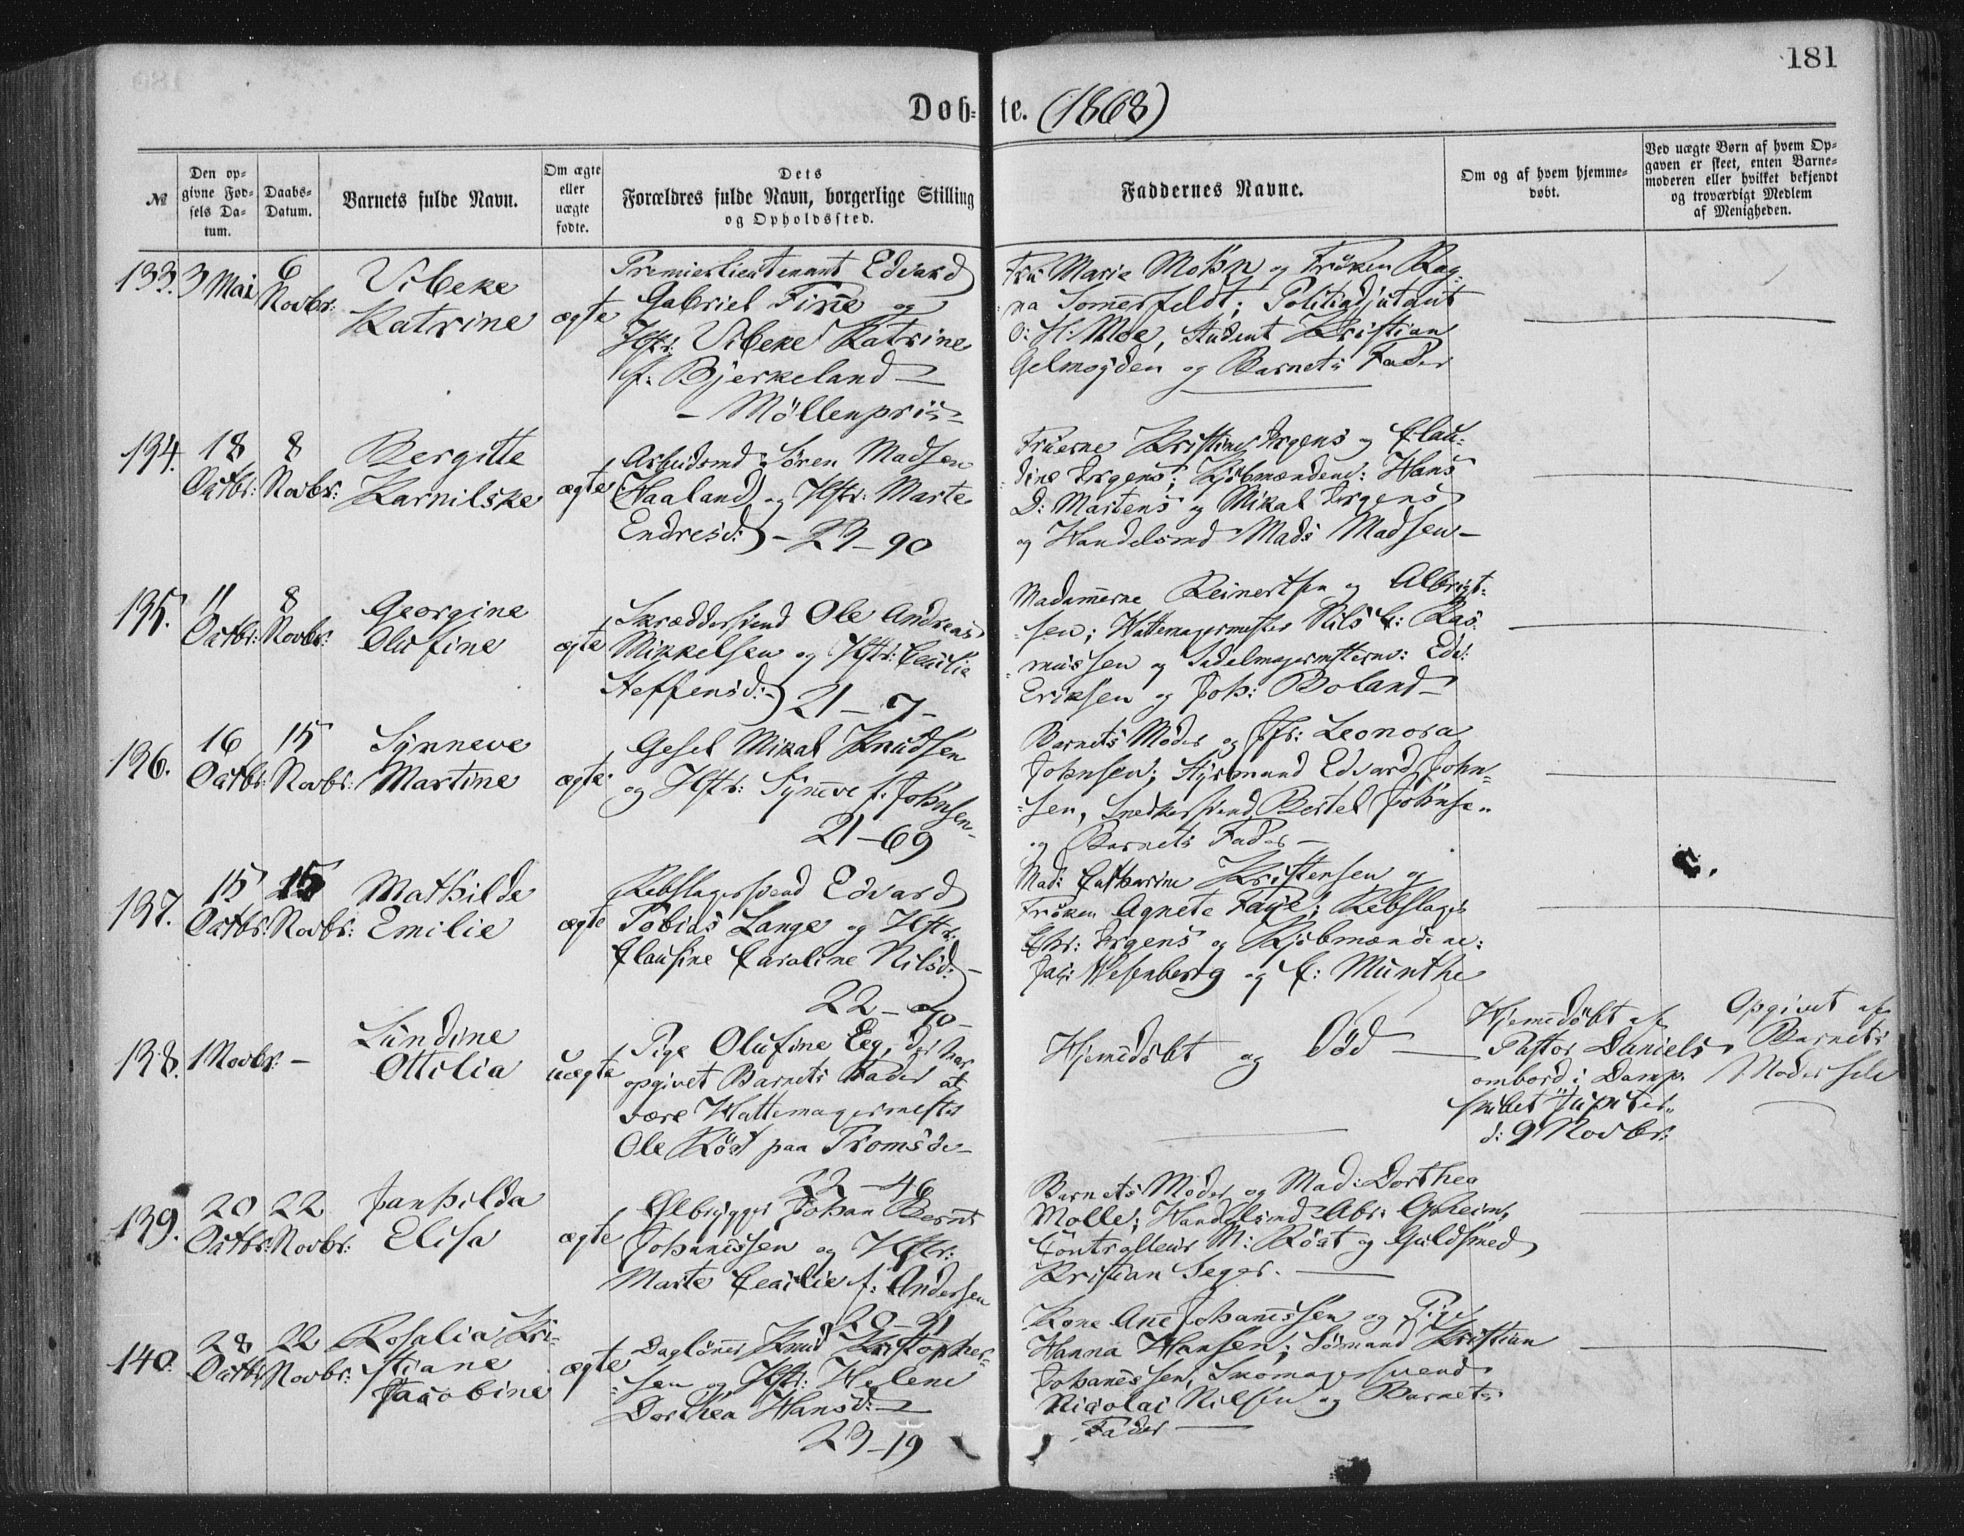 181
Døb- te. (1868)
№
Den op-
givne Fød-
sels Da-
tum.
Daabs-
Datum.
Barnets fulde Navn.
Om ægte
eller
uægte
fødte.
Dets
Forældres fulde Navn, borgerlige Stilling
og Opholdssted.
Faddernes Navne.
Om og af hvem hjemme-
døbt.
Ved uægte Børn af hvem Op-
gaven er skeet, enten Barne-
moderen eller hvilket bekjendt
og troværdigt Medlem
af Menigheden.
133. 3 Mai 6 Novbr:
Vibeke
Katrine
ægte
Premierlieutenant Edvard
Gabriel Finne og
Hstr: Vibeke Katrine
f: Bjerkeland —
— Möllenpriis
Fru Marie Mohn og Frøken Rag-
na Sommerfeldt; Politiadjutant
O: H: Moe, Student Kristian
Gelmøyden og Barnets Fader
134. 18 Octbr: 8 Novbr:
Bergitte
Karnilske
ægte
Arbeidsmd Sören Madsen
(Haaland) og Hstr: Marte
Endresd: — 23 — 90
Fruerne Kristine Irgens og Clau-
dine Irgens; Kjøbmændene: Hans
D: Martens og Mikal Irgens
og Handelsmd Mads Madsen —
135. 11 Octbr: 8 Novbr:
Georgine
Olufine
ægte
Skræddersvend Ole Andreas
Mikkelsen og Hstr: Cecilie
Steffensd: —
21 — 7 —
Madammerne Reinertsen og Albrigt-
sen; Hattemagermester Nils C: Ras-
mussen og Sadelmagermesterne: Edv:
Eriksen og Joh: Boland —
136. 16 Octbr: 15 Novbr:
Synneve
Martine
ægte
Gesel Mikal Knudsen
og Hstr: Synneve f: Johnsen —
21 — 69
Barnets Moder og Jfr: Leonora
Johnsen; Styrmand Edvard John-
sen, Snedkersvend Bertel Johnsen
og Barnets Fader —
137. 15 Octbr: 15 Novbr:
Mathilde
Emilie
ægte
Rebslagersvend Edvard
Tobias Lange og Hstr:
Clausine Caroline Nilsd: —
22 — 70 —
Mad: Catharine Kristensen og
Frøken Agnete Faye; Rebslager
Chr: Irgens og Kjøbmændene:
Jac: Wesenberg og C: Munthe
138. 1 Novbr: —
Lundine
Ottilia
uægte
Pige Olufine Eeg, der har
opgivet Barnets Fader at
være Hattemagermester
Ole Röst paa Tromsöe —
22 — 46
Hjemmedøbt og død —
Hjemmedøbt af
Pastor Daniels
ombord i Damp-
skibet "Jupiter"
d: 9 Novbr:
Opgivet af
Barnets
Moder selv
139. 20 Octbr: 22 Novbr:
Janhilda
Elisa
ægte
Ølbrygger Johan Bernt
Johannessen og Hstr:
Marte Cecilie f: Andersen
20 — 91
Barnets Moder og Mad: Dorthea
Molle; Handelsmd Abr:
Controlleur M: Röst og Guldsmed
Kristian Seger. —
140. 28 Octbr: 22 Novbr:
Rosalia Kri-
stiane
Jacobine
ægte
Daglönner Knud Kristopher-
sen og Hstr: Helene
Dorthea Hansd: —
23 — 19
Kone Ane Johannessen og Pige
Hanna Hansen; Sømand Kristian
Johannessen, Skomagersvend
Nicolai Nilsen og Barnets
Fader —